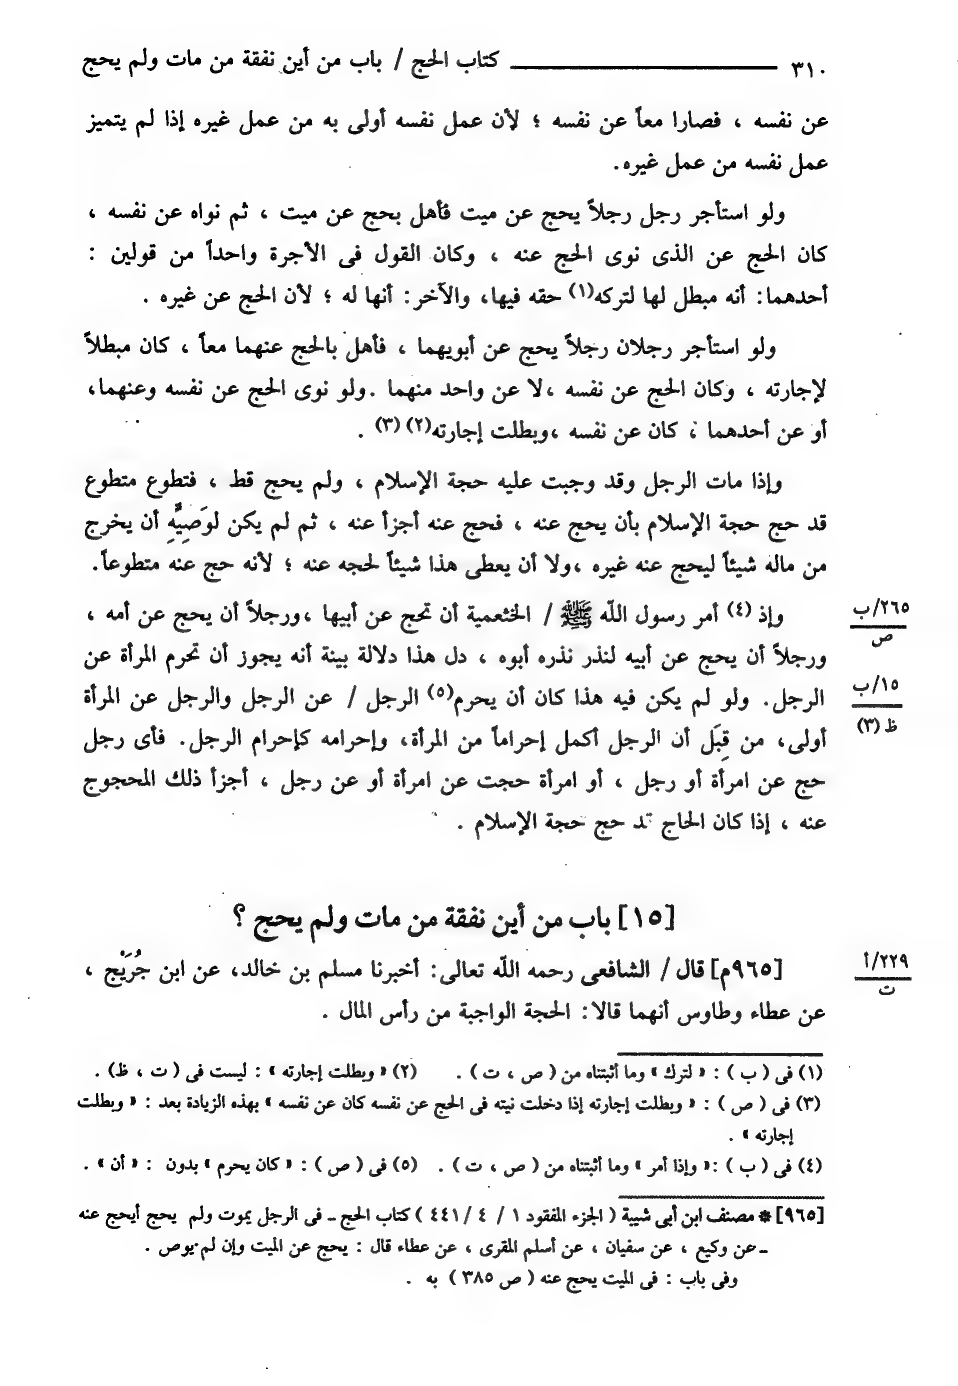 ٣١٠ ــــــــــــــــ كتاب الحج / باب من أين نفقة من مات ولم يحج
عن نفسه ، فصارا معاً عن نفسه ؛ لأن عمل نفسه أولى به من عمل غيره إذا لم يتميز
عمل نفسه من عمل غيره.
ولو استأجر رجل رجلاً يحج عن ميت فأهل بحج عن ميت ، ثم نواه عن نفسه ،
كان الحج عن الذى نوى الحج عنه ، وكان القول فى الأجرة واحداً من قولين :
أحدهما: أنه مبطل لها لتركه(١) حقه فيها، والآخر: أنها له ؛ لأن الحج عن غيره .
ولو استأجر رجلان رجلاً يحج عن أبويهما ، فأهل بالحج عنهما معاً ، كان مبطلاً
لإجارته ، وكان الحج عن نفسه ،لا عن واحد منهما .ولو نوى الحج عن نفسه وعنهما،
أو عن أحدهما ، كان عن نفسه ،وبطلت إجارته(٢) (٣) .
وإذا مات الرجل وقد وجبت عليه حجة الإسلام ، ولم يحج قط ، فتطوع متطوع
قد حج حجة الإسلام بأن يحج عنه ، فحج عنه أجزأ عنه ، ثم لم يكن لوَصِيِّه أن يخرج
من ماله شيئاً ليحج عنه غيره ،ولا أن يعطى هذا شيئاً لحجه عنه ؛ لأنه حج عنه متطوعاً.
وإذ (٤) أمر رسول اللّه ﷺ / الخثعمية أن تحج عن أبيها ،ورجلاً أن يحج عن أمه ،
٢٦٥/ب
ص
ورجلاً أن يحج عن أبيه لنذر نذره أبوه ، دل هذا دلالة بينة أنه يجوز أن تحرم المرأة عن
الرجل. ولو لم يكن فيه هذا كان أن يحرم(٥) الرجل / عن الرجل والرجل عن المرأة
١٥/ب
ظ (٣)
أولى، من قِبَل أن الرجل أكمل إحراماً من المرأة، وإحرامه كإحرام الرجل. فأى رجل
حج عن امرأة أو رجل ، أو امرأة حجت عن امرأة أو عن رجل ، أجزأ ذلك المحجوج
عنه ، إذا كان الحاج قد حج حجة الإسلام .
[١٥] باب من أين نفقة من مات ولم يحج ؟
[٩٦٥م] قال / الشافعى رحمه اللّه تعالى: أخبرنا مسلم بن خالد، عن ابن جُرَيْج ،
٢٢٩/أ
ت
عن عطاء وطاوس أنهما قالا: الحجة الواجبة من رأس المال .
(١) فى ( ب ) : « لترك » وما أثبتناه من ( ص ، ت ) . (٢) « وبطلت إجارته » : ليست فى ( ت ، ظ ) .
(٣) فى ( ص ) : « وبطلت إجارته إذا دخلت نيته فى الحج عن نفسه كان عن نفسه » بهذه الزيادة بعد : « وبطلت
إجارته » .
(٤) فى ( ب ) :« وإذا أمر » وما أثبتناه من ( ص ، ت ) . (٥) فى ( ص ) : « كان يحرم » بدون : « أن » .
[٩٦٥] * مصنف ابن أبى شيبة ( الجزء المفقود ١ / ٤ / ٤٤١ ) كتاب الحج ــ فى الرجل يموت ولم يحج أيحج عنه
ــ عن وكيع ، عن سفيان ، عن أسلم المقرى ، عن عطاء قال : يحج عن الميت وإن لم يوص .
وفى باب : فى الميت يحج عنه ( ص ٣٨٥ ) به .